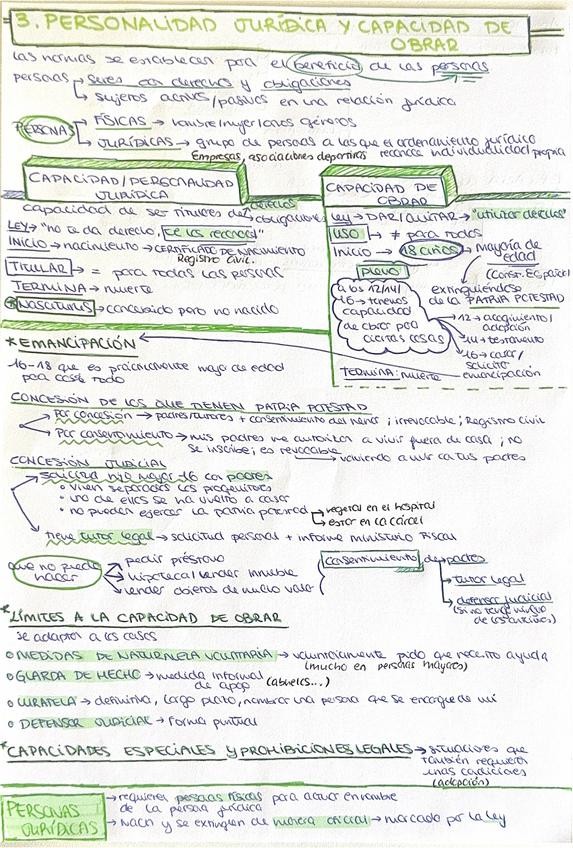 3. PERSONALIDAD JURÍDICA Y CAPACIDAD DE
OBRAR
las normas se establecen para el beneficio de las personas
personas → seres con derechos y obligaciones
↳ sujetos activos/pasivos en una relación jurídica
PERSONAS
FÍSICAS → hombre/mujer/otros géneros
JURÍDICAS → grupo de personas a las que el ordenamiento jurídico
Empresas, asociaciones deportivas reconoce individualidad propia
CAPACIDAD/PERSONALIDAD
JURÍDICA
capacidad de ser titulares de derechos
obligaciones
LEY → "no te da derecho, te los reconoce"
INICIO → nacimiento → CERTIFICADO DE NACIMIENTO
Registro Civil.
TITULAR → = para todas las personas
TERMINA → muerte
*NASCITURUS → concebido pero no nacido
CAPACIDAD DE
OBRAR
Ley → DAR/QUITAR → "utilizar derechos"
USO → ≠ para todos
Inicio → 18 años → Mayoría de
edad
(Const. Española)
pleno
extinguiéndose
de la PATRIA POTESTAD
a los 12/14/
16 → tenemos
capacidad
de obrar para
ciertas cosas
→ 12 → acogimiento/
adopción
14 → testamento
16 → casar/
solicitar
emancipación
TERMINA: muerte
*EMANCIPACIÓN
16-18 que es prácticamente mayor de edad
para casi todo
CONCESIÓN DE LOS QUE TIENEN PATRIA POTESTAD
Por concesión → padres/tutores + consentimiento del menor; irrevocable; Registro Civil
Por consentimiento → mis padres me autorizan a vivir fuera de casa; no
se inscribe; es revocable → volviendo a vivir con tus padres
CONCESIÓN JUDICIAL
solicitud hijo mayor 16 con padres
• viven separados los progenitores
• uno de ellos se ha vuelto a casar
• no pueden ejercer la patria potestad → vegetal en el hospital
→ estar en la cárcel
tiene tutor legal → solicitud personal + informe ministerio fiscal
que no puede
hacer
→ pedir préstamo
→ hipotecar/vender inmueble
→ vender objetos de mucho valor
consentimiento de padres
→ tutor legal
→ defensor judicial
(si no tiene ninguno
de los anteriores)
*LÍMITES A LA CAPACIDAD DE OBRAR
se adaptan a los casos
○ MEDIDAS DE NATURALEZA VOLUNTARIA → voluntariamente pido que necesito ayuda
(mucho en personas mayores)
○ GUARDA DE HECHO → medida informal
de apoyo (abuelos...)
○ CURATELA → definitiva, largo plazo, nombrar una persona que se encargue de mí
○ DEFENSOR JUDICIAL → forma puntual
*CAPACIDADES ESPECIALES Y PROHIBICIONES LEGALES → situaciones que
también requieren
unas condiciones
(adopción)
PERSONAS
JURÍDICAS
→ requieren personas físicas para actuar en nombre
de la persona jurídica
→ Nacen y se extinguen de manera oficial → marcado por la ley